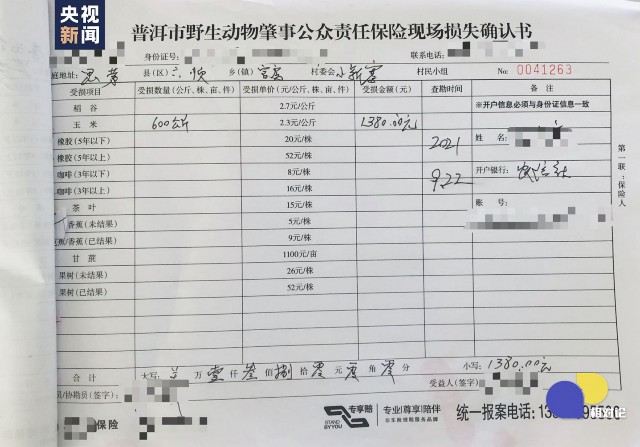 央视
新闻
普洱市野生动物肇事公众责任保险现场损失确认书
身份证号: 联系电话:
庭地址: 思茅 县(区) 三 顺 乡(镇) 村委会 小新寨 村民小组 No: 0041263
受损项目 受损数量(公斤、株、亩、件) 受损单价(元/公斤、株、亩、件) 受损金额(元) 查勘时间 备 注
稻谷 2.7元/公斤 ※开户信息必须与身份证信息一致
玉 米 600公斤 2.3元/公斤 1380.00元
橡胶(5年以下) 20元/株 2021 姓 名:
橡胶(5年以上) 52元/株
咖啡(3年以下) 8元/株 9.22 开户银行: 农信社
咖啡(3年以上) 16元/株
茶 叶 15元/株 账 号:
香蕉(未结果) 5元/株
芭蕉/香蕉(已结果) 9元/株
甘 蔗 1100元/亩
果树(未结果) 26元/株
果树(已结果) 52元/株
第一联:保险人
合 计 大写: 万 壹 仟 叁 佰 捌 拾 零 元 零 角 零 分 小写: 1380.00元
员/协勘员(签字): 受益人(签字):
保险
专享赔
STAND BY YOU
专业|尊享|陪伴
非车险理赔服务品牌
统一报案电话:13